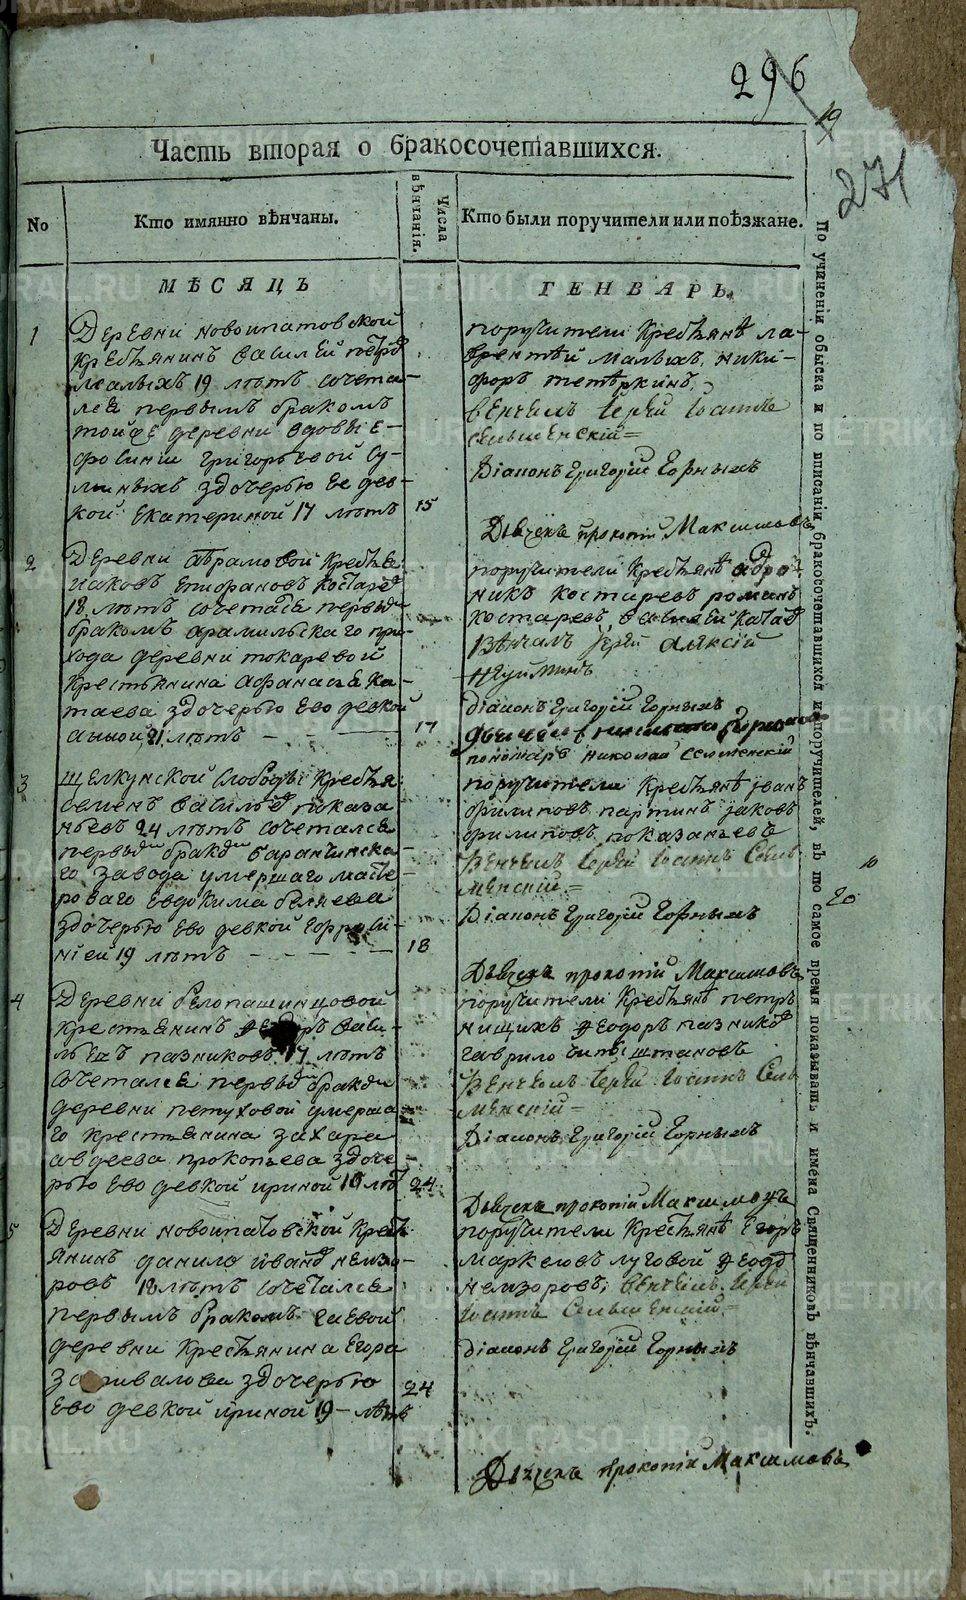 296
19
271
Часть вторая о бракосочетавшихся.
No
Кто имянно вѣнчаны.
Числа вѣнчанія.
Кто были поручители или поѣзжане.
МѢСЯЦЪ
ГЕНВАРЬ.
1
Деревни новоипатовской
крестьянинъ василей петро
малыхъ 19 лѣтъ сочета-
лся первымъ бракомъ
тойже деревни вдовы е-
фросинии григорьевой су-
здочерью ее дев-
кой екатериной 17 лѣтъ
15
поручители крестьянѣ ла-
врентѣй малыхъ, ники-
форъ тетѣркинъ,
венчалъ Іерей Іоаннъ
Селменскій
Діаконъ Григорий Горныхъ
Дьячекъ прокопий Максимовъ
2
Деревни абрамовой крестья
иаковъ епифановъ костаре
18 лѣтъ сочетался первы
бракомъ арамильскаго при-
хода деревни токаревой
крестьянина афанасья ка-
таева здочерью ево девкой
анной 21 лѣтъ
17
поручители крестьянѣ андро-
никъ костаревъ романъ
костаревъ, василей ката
Вѣнчалъ Іерей алексій
діаконъ Григорий Горныхъ
пономарь николай
3
щелкунской слободы крестья
семенъ василье показа
ньевъ 24 лѣтъ сочетался
первы брако баранчинска-
го завода умершаго масте-
роваго евдокима беляева
здочерью ево девкой
ніей 19 лѣтъ
18
поручители крестьянѣ іванъ
филиповъ паргинъ іаковъ
филиповъ показаньевъ
Венчалъ Іерей Іоаннъ Сел
менский
Діаконъ Григорий Горныхъ
Дьячекъ прокопий Максимовъ
4
Деревни белопашинцовой
крестьянинъ васи-
льевъ пазниковъ 17 лѣтъ
сочетался первы брако
деревни петуховой умерша-
го крестьянина захара
авдеева прокопьева здоче
рью ево девкой ириной 19 лѣ
24
поручители крестьянѣ петръ
нищихъ Феодоръ пазнико
гаврило
Венчалъ Іерей Іоаннъ Сел
менский
Діаконъ Григорий Горныхъ
Дьячекъ прокопий Максимовъ
5
Деревни новоипатовской крес
янинъ данило ивано немзо-
ровъ 18 лѣтъ сочетался
первымъ бракомъ
деревни крестьянина Егора
здочерью
ево девкой ириной 19 лѣтъ
24
поручители крестьянѣ Егоръ
маркеловъ луговой Феодо
немзоровъ; венчалъ Іерей
Іоаннъ Селменский
діаконъ Григорий Горныхъ
Дьячекъ прокопий Максимовъ
По учиненіи обыска и по вписаніи бракосочетавшихся и поручителей, въ то самое время показывать и имена Священниковъ вѣнчавшихъ.
20
METRIKI.GASO-URAL.RU